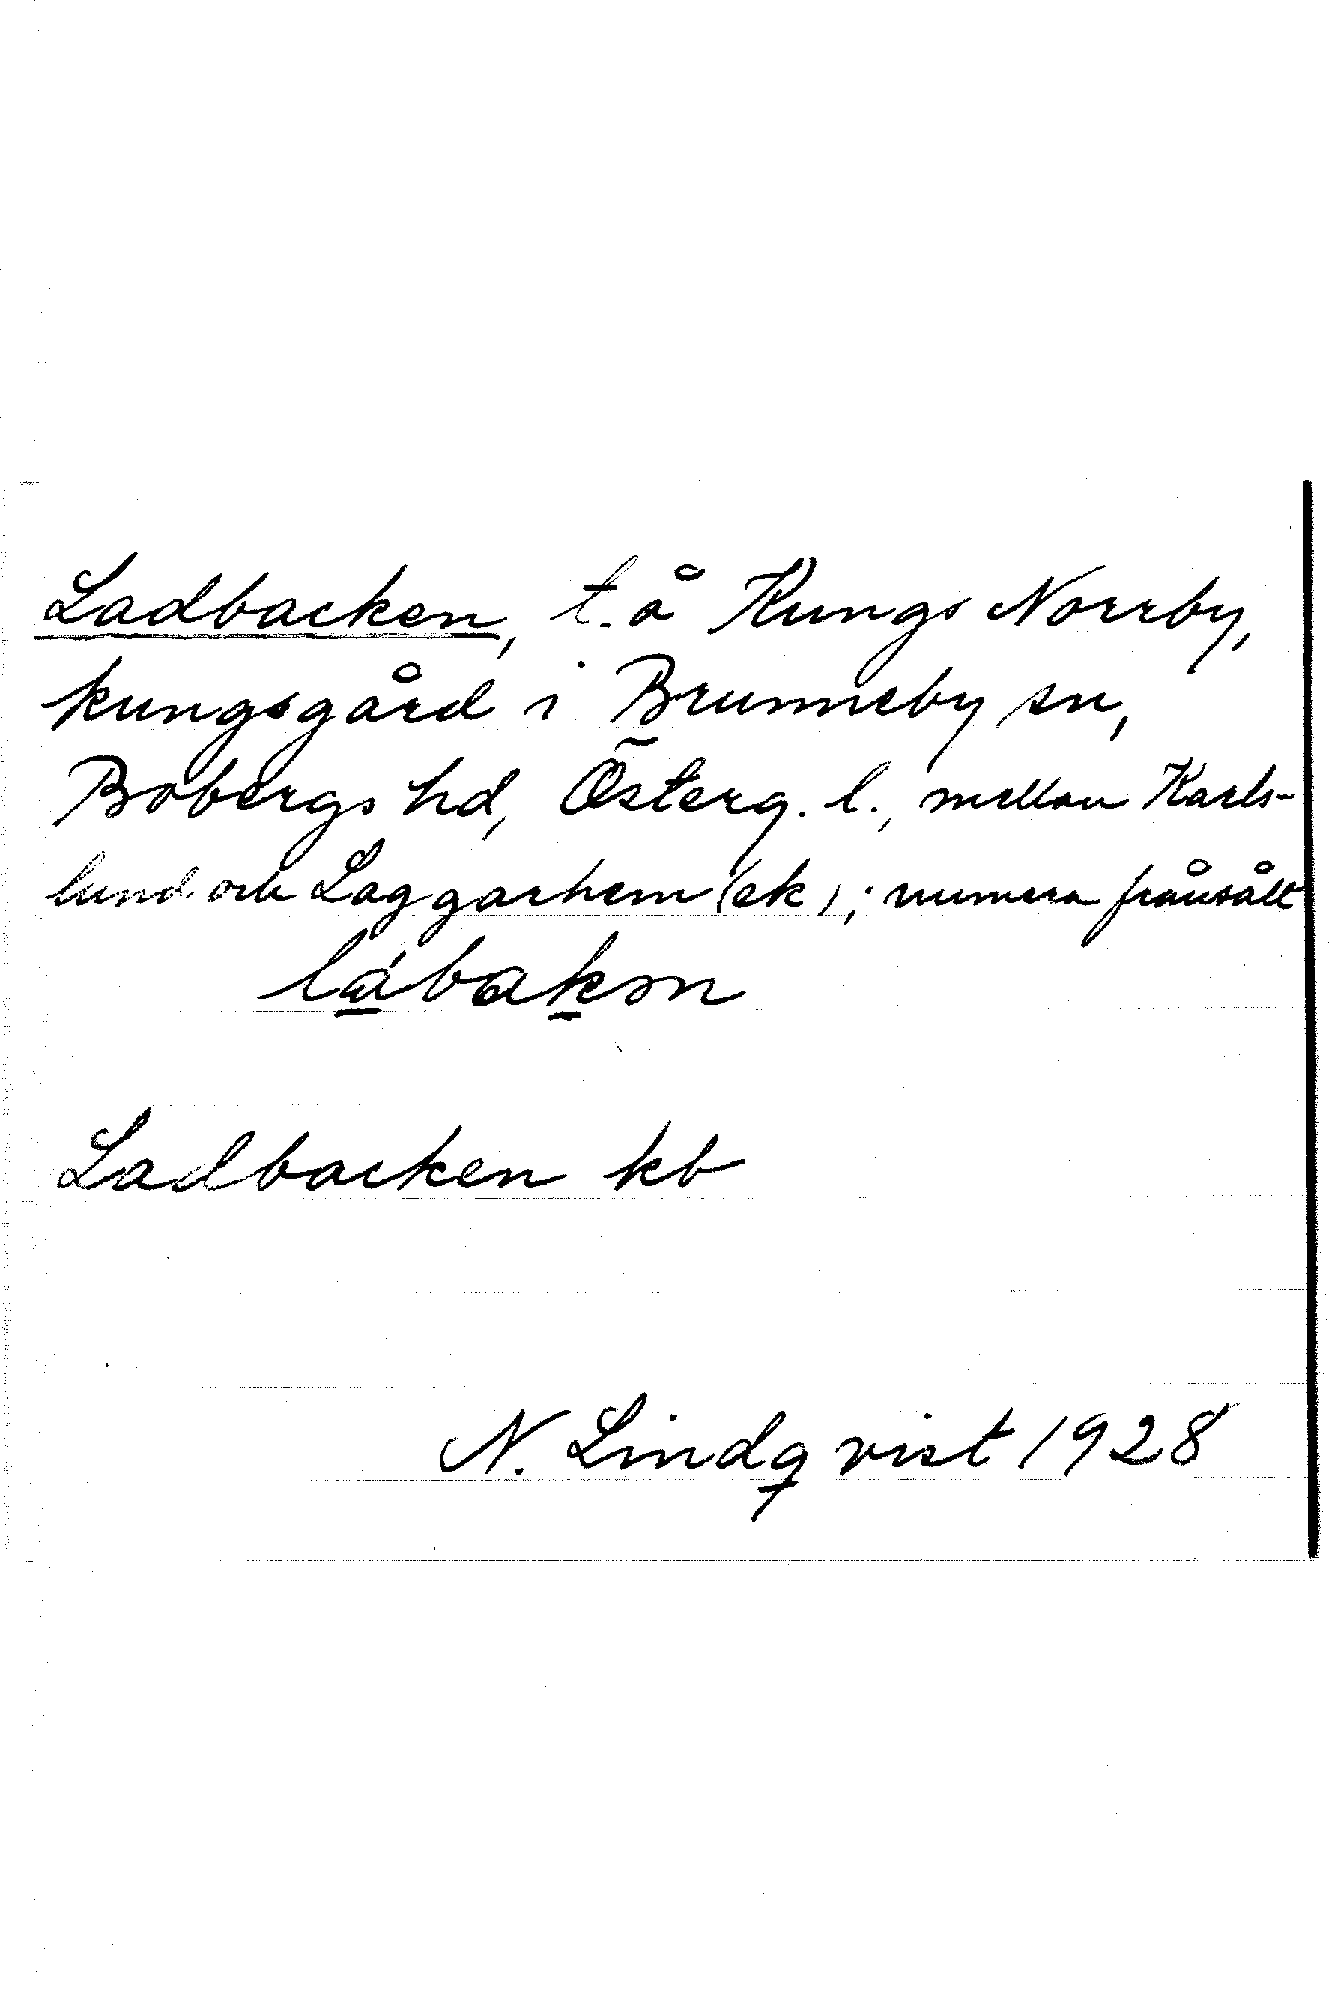 Ladbacken, t. å Kungs Norrby,
kungsgård i Brunneby sn,
Bobergs hd, Österg. l., mellan Karls-
lund och Laggarhem (ek); numera frånsålt
lábakən
Ladbacken kb
N. Lindqvist 1928